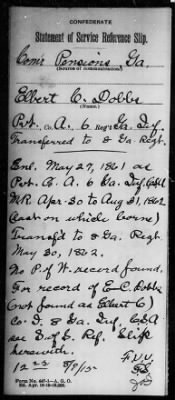 CONFEDERATE
Statement of Service Reference Slip.
Com'r Pensions, Ga.
(Source of communication.)
Elbert C. Dobbs
(Name.)
Pvt. Co. A, 6 Reg't Ga. Inf.
Transferred to 8 Ga. Regt.
Enl. May 27, 1861 as
Pvt. Co. A. 6 Ga. Inf. CSA
MR Apr. 30 to Aug 31, 1862
(last on which borne)
Transf'd to 8 Ga. Regt.
May 30, 1862.
No P. of W. record found.
For record of E. C. Dobbs
(not found as Elbert C)
Co. D. 8 Ga. Inf, CSA
see D. of E. Ref. Slip
herewith.
F.V.V.
12 8/9/15
Form No. 447-1—A. G. O.